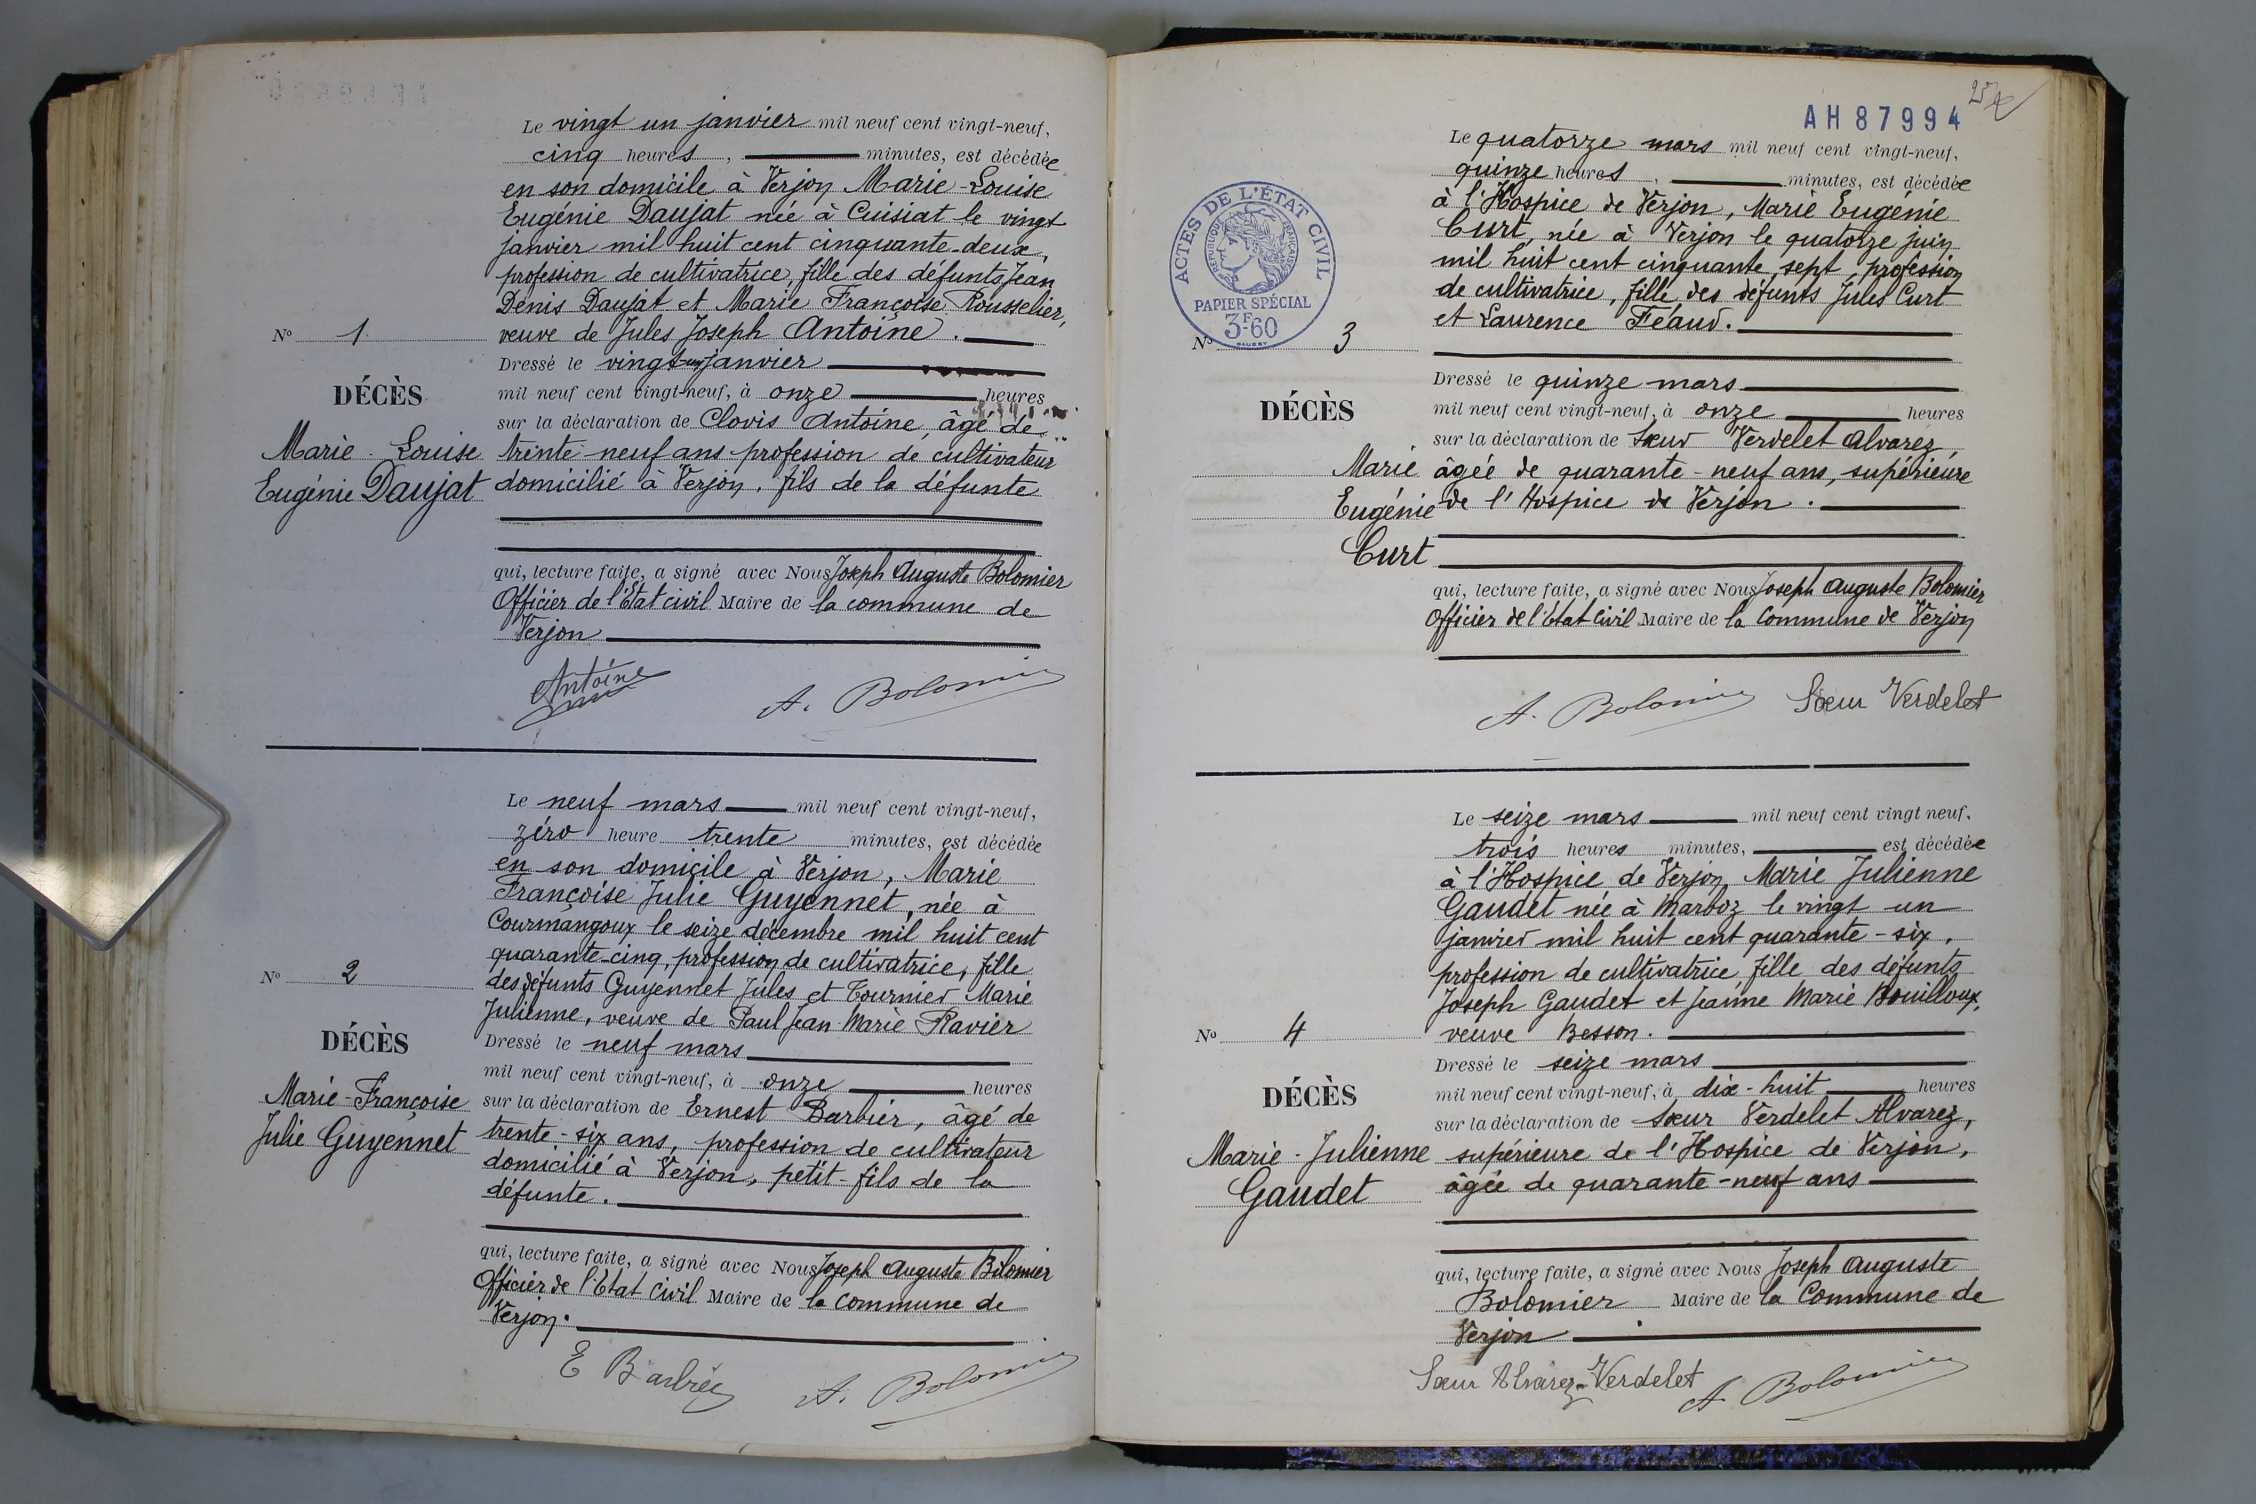 Le vingt un janvier mil neuf cent vingt-neuf,
cinq heures, minutes, est décédée
en son domicile à Verjon Marie-Louise
Eugénie Daujat née à Cuisiat le vingt
janvier mil huit cent cinquante-deux,
profession de cultivatrice, fille des défunts Jean
Denis Daujat et Marie Françoise Rousselier,
veuve de Jules Joseph Antoine.
Dressé le vingt-un janvier
mil neuf cent vingt-neuf, à onze heures
sur la déclaration de Clovis Antoine, âgé de
trente neuf ans profession de cultivateur
domicilié à Verjon, fils de la défunte
qui, lecture faite, a signé avec Nous Joseph Auguste Bolomier
Officier de l'État civil Maire de la commune de
Verjon
Antoine A. Bolomier
No 1
DÉCÈS
Marie-Louise
Eugénie Daujat
Le neuf mars mil neuf cent vingt-neuf,
zéro heure trente minutes, est décédée
en son domicile à Verjon, Marie
Françoise Julie Guyennet, née à
Courmangoux le seize décembre mil huit cent
quarante-cinq, profession de cultivatrice, fille
des défunts Guyennet Jules et Tournier Marie
Julienne, veuve de Paul Jean Marie Ravier
Dressé le neuf mars
mil neuf cent vingt-neuf, à onze heures
sur la déclaration de Ernest Barbier, âgé de
trente-six ans, profession de cultivateur
domicilié à Verjon, petit-fils de la
défunte.
qui, lecture faite, a signé avec Nous Joseph Auguste Bolomier
Officier de l'Etat Civil Maire de la commune de
Verjon.
E Barbier A. Bolomier
No 2
DÉCÈS
Marie-Françoise
Julie Guyennet
254
AH87994
ACTES DE L'ÉTAT CIVIL
RÉPUBLIQUE FRANÇAISE
PAPIER SPÉCIAL
3F60
Le quatorze mars mil neuf cent vingt-neuf,
quinze heures, minutes, est décédée
à l'Hospice de Verjon, Marie Eugénie
Curt, née à Verjon le quatorze juin
mil huit cent cinquante sept, profession
de cultivatrice, fille des défunts Jules Curt
et Laurence Féaud.
Dressé le quinze mars
mil neuf cent vingt-neuf, à onze heures
sur la déclaration de Sœur Verdelet Alvarez,
âgée de quarante-neuf ans, supérieure
de l'Hospice de Verjon.
qui, lecture faite, a signé avec Nous Joseph Auguste Bolomier
Officier de l'Etat Civil Maire de la Commune de Verjon
A. Bolomier Sœur Verdelet
No 3
DÉCÈS
Marie
Eugénie
Curt
Le seize mars mil neuf cent vingt neuf,
trois heures minutes, est décédée
à l'Hospice de Verjon Marie Julienne
Gaudet née à Marboz le vingt un
janvier mil huit cent quarante-six,
profession de cultivatrice, fille des défunts
Joseph Gaudet et Jeanne Marie Bouilloux,
veuve Besson.
Dressé le seize mars
mil neuf cent vingt-neuf, à dix-huit heures
sur la déclaration de Sœur Verdelet Alvarez,
supérieure de l'Hospice de Verjon,
âgée de quarante-neuf ans
qui, lecture faite, a signé avec Nous Joseph Auguste
Bolomier Maire de la Commune de
Verjon
Sœur Alvarez-Verdelet A. Bolomier
No 4
DÉCÈS
Marie-Julienne
Gaudet